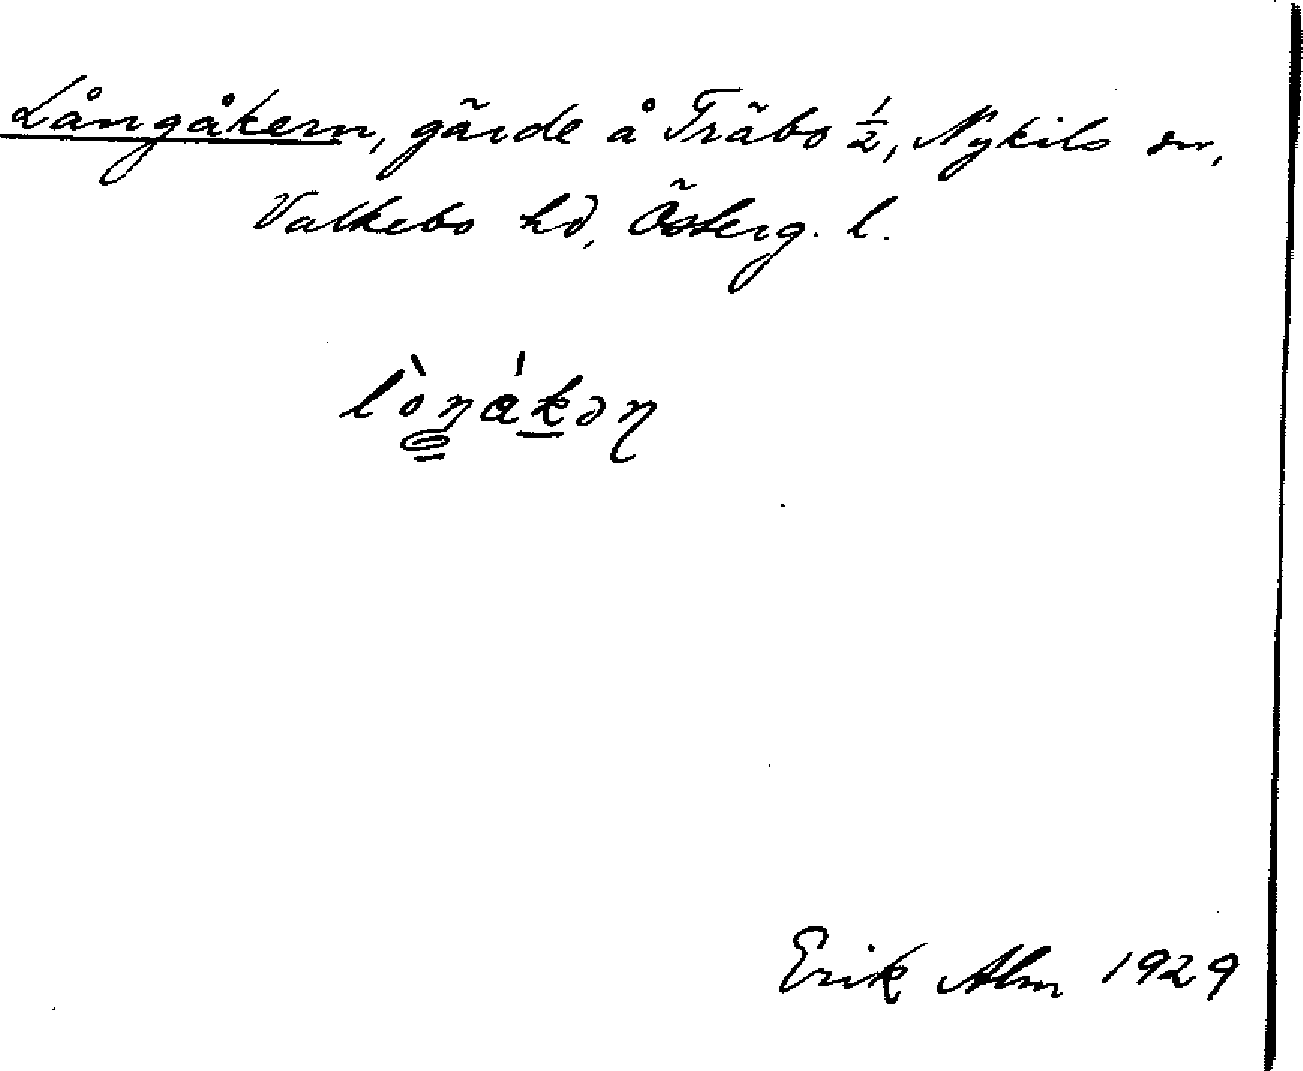 Långåkern, gärde å Träbo ½, Nykils sn,
Valkebo hd, Österg. l.
lòŋákəη
Erik Alm 1929